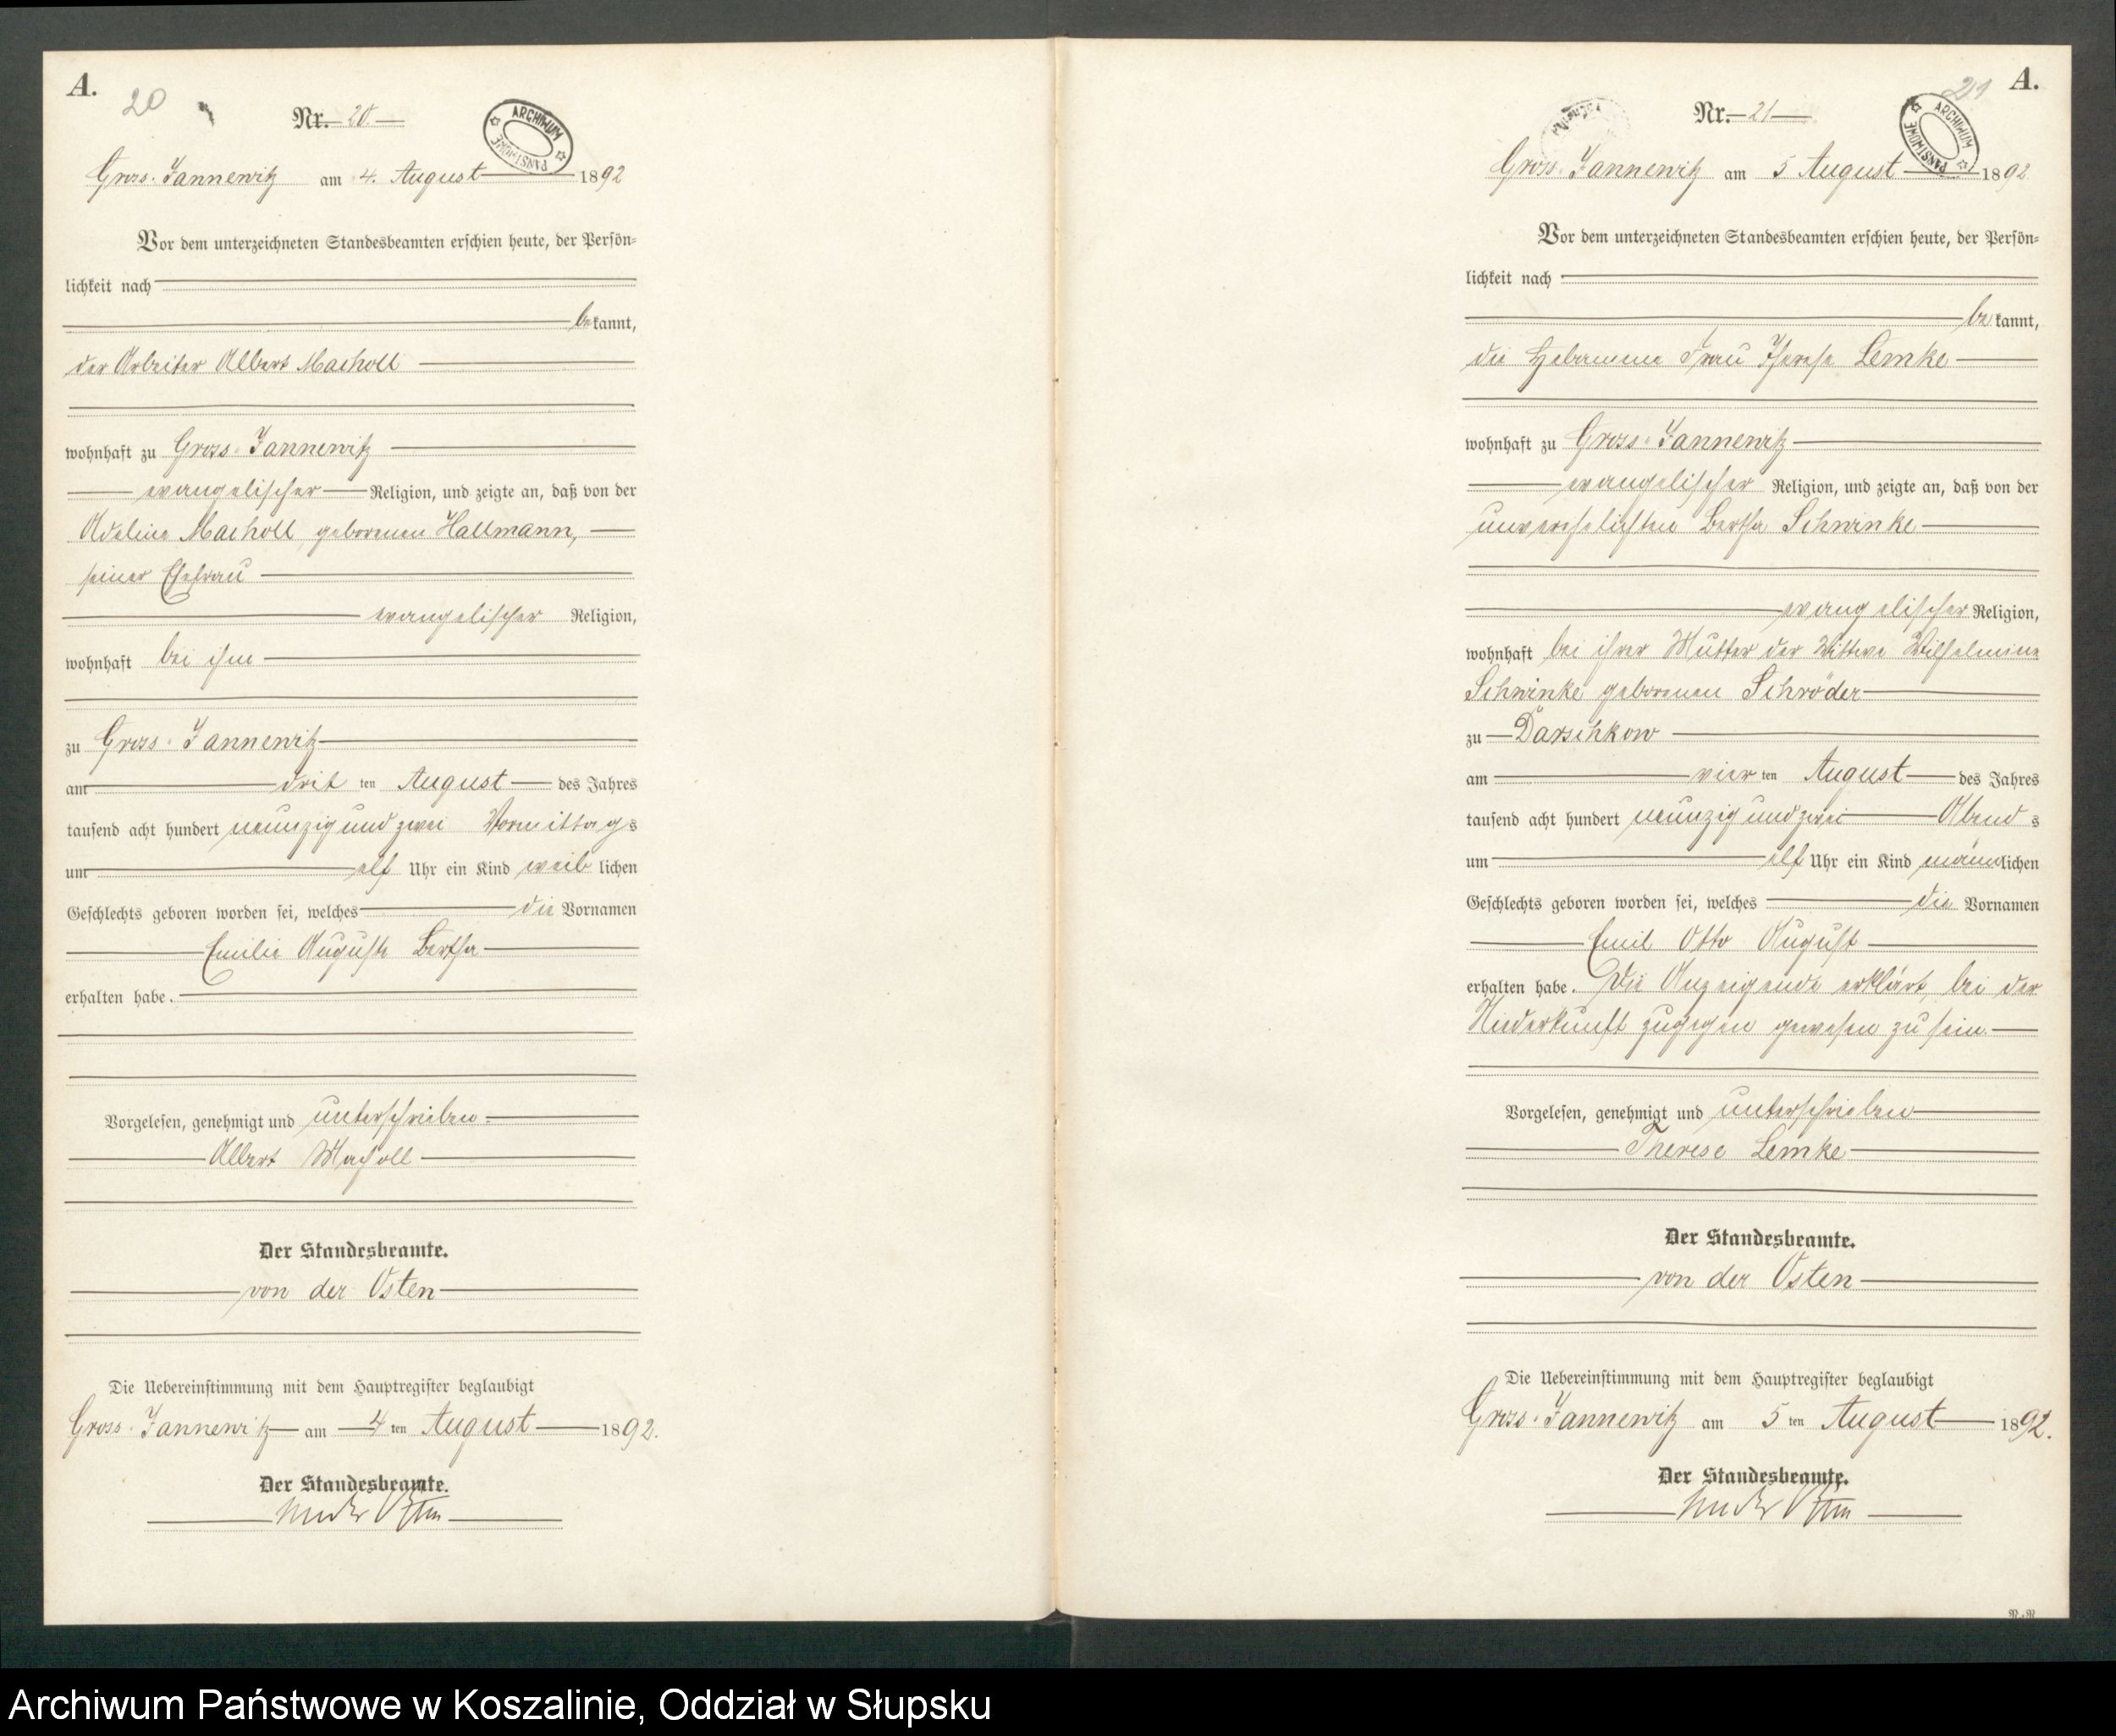 A.
20
Nr. 20.
ARCHIWUM PAŃSTWOWE
Gross-Jannewitz am 4. August 1892
Vor dem unterzeichneten Standesbeamten erschien heute, der Persön=
lichkeit nach
bekannt,
der Arbeiter Albert Macholl
wohnhaft zu Gross-Jannewitz
evangelischer Religion, und zeigte an, daß von der
Adeline Macholl geborenen Hallmann,
seiner Ehefrau
evangelischer Religion,
wohnhaft bei ihm
zu Gross-Jannewitz
am dritten August des Jahres
tausend acht hundert neunzig und zwei Vormittags
um elf Uhr ein Kind weiblichen
Geschlechts geboren worden sei, welches die Vornamen
Emilie Auguste Bertha
erhalten habe.
Vorgelesen, genehmigt und unterschrieben.
Albert Macholl
Der Standesbeamte.
von der Osten
Die Uebereinstimmung mit dem Hauptregister beglaubigt
Gross-Jannewitz am 4ten August 1892.
Der Standesbeamte.
von der Osten
21
A.
Nr. 21
ARCHIWUM PAŃSTWOWE
Gross-Jannewitz am 5 August 1892
Vor dem unterzeichneten Standesbeamten erschien heute, der Persön=
lichkeit nach
bekannt,
die Hebamme Frau Therese Lemke
wohnhaft zu Gross-Jannewitz
evangelischer Religion, und zeigte an, daß von der
unverehelichten Bertha Schwinke
evangelischer Religion,
wohnhaft bei ihrer Mutter der Wittwe Wilhelmine
Schwinke geborenen Schröder
zu Darschkow
am vierten August des Jahres
tausend acht hundert neunzig und zwei Abends
um elf Uhr ein Kind männlichen
Geschlechts geboren worden sei, welches die Vornamen
Emil Otto August
erhalten habe. Die Anzeigende erklärt, bei der
Niederkunft zugegen gewesen zu sein.
Vorgelesen, genehmigt und unterschrieben
Therese Lemke
Der Standesbeamte.
von der Osten
Die Uebereinstimmung mit dem Hauptregister beglaubigt
Gross-Jannewitz am 5ten August 1892.
Der Standesbeamte.
von der Osten
Archiwum Państwowe w Koszalinie, Oddział w Słupsku